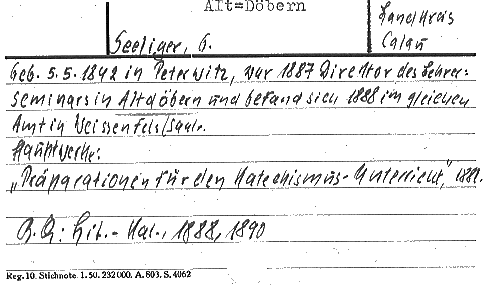 Alt=Döbern
Landkreis
Calau
Seeliger, G.
Geb. 5.5.1842 in Peterwitz, war 1887 Direktor des Lehrer=
seminars in Altdöbern und befand sich 1888 im gleichen
Amt in Weissenfels/Saale.
Hauptwerke:
„Präparationen für den Katechismus-Unterricht", 188
B.Q.: Lit.-Kal., 1888, 1890
Reg. 10. Stichnote. 1. 50. 232000. A. 803. S. 4062